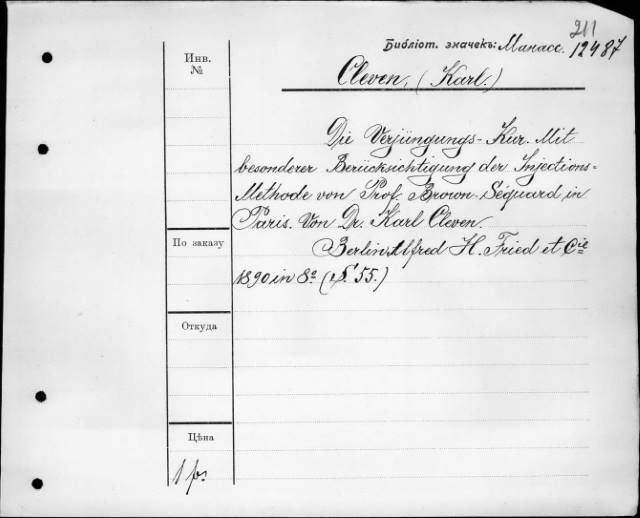 211
Библіот. значекъ: Манасс. 12487
Инв.
№
Cleven, (Karl.)
Die Verjüngungs-Kur. Mit
besonderer Berücksichtigung der Injections-
Methode von Prof. Brown-Séquard in
Paris. Von Dr. Karl Cleven.
По заказу
Berlin Alfred H. Fried et Cie
1890 in 8º (S. 55.)
Откуда
Цѣна
1 р.